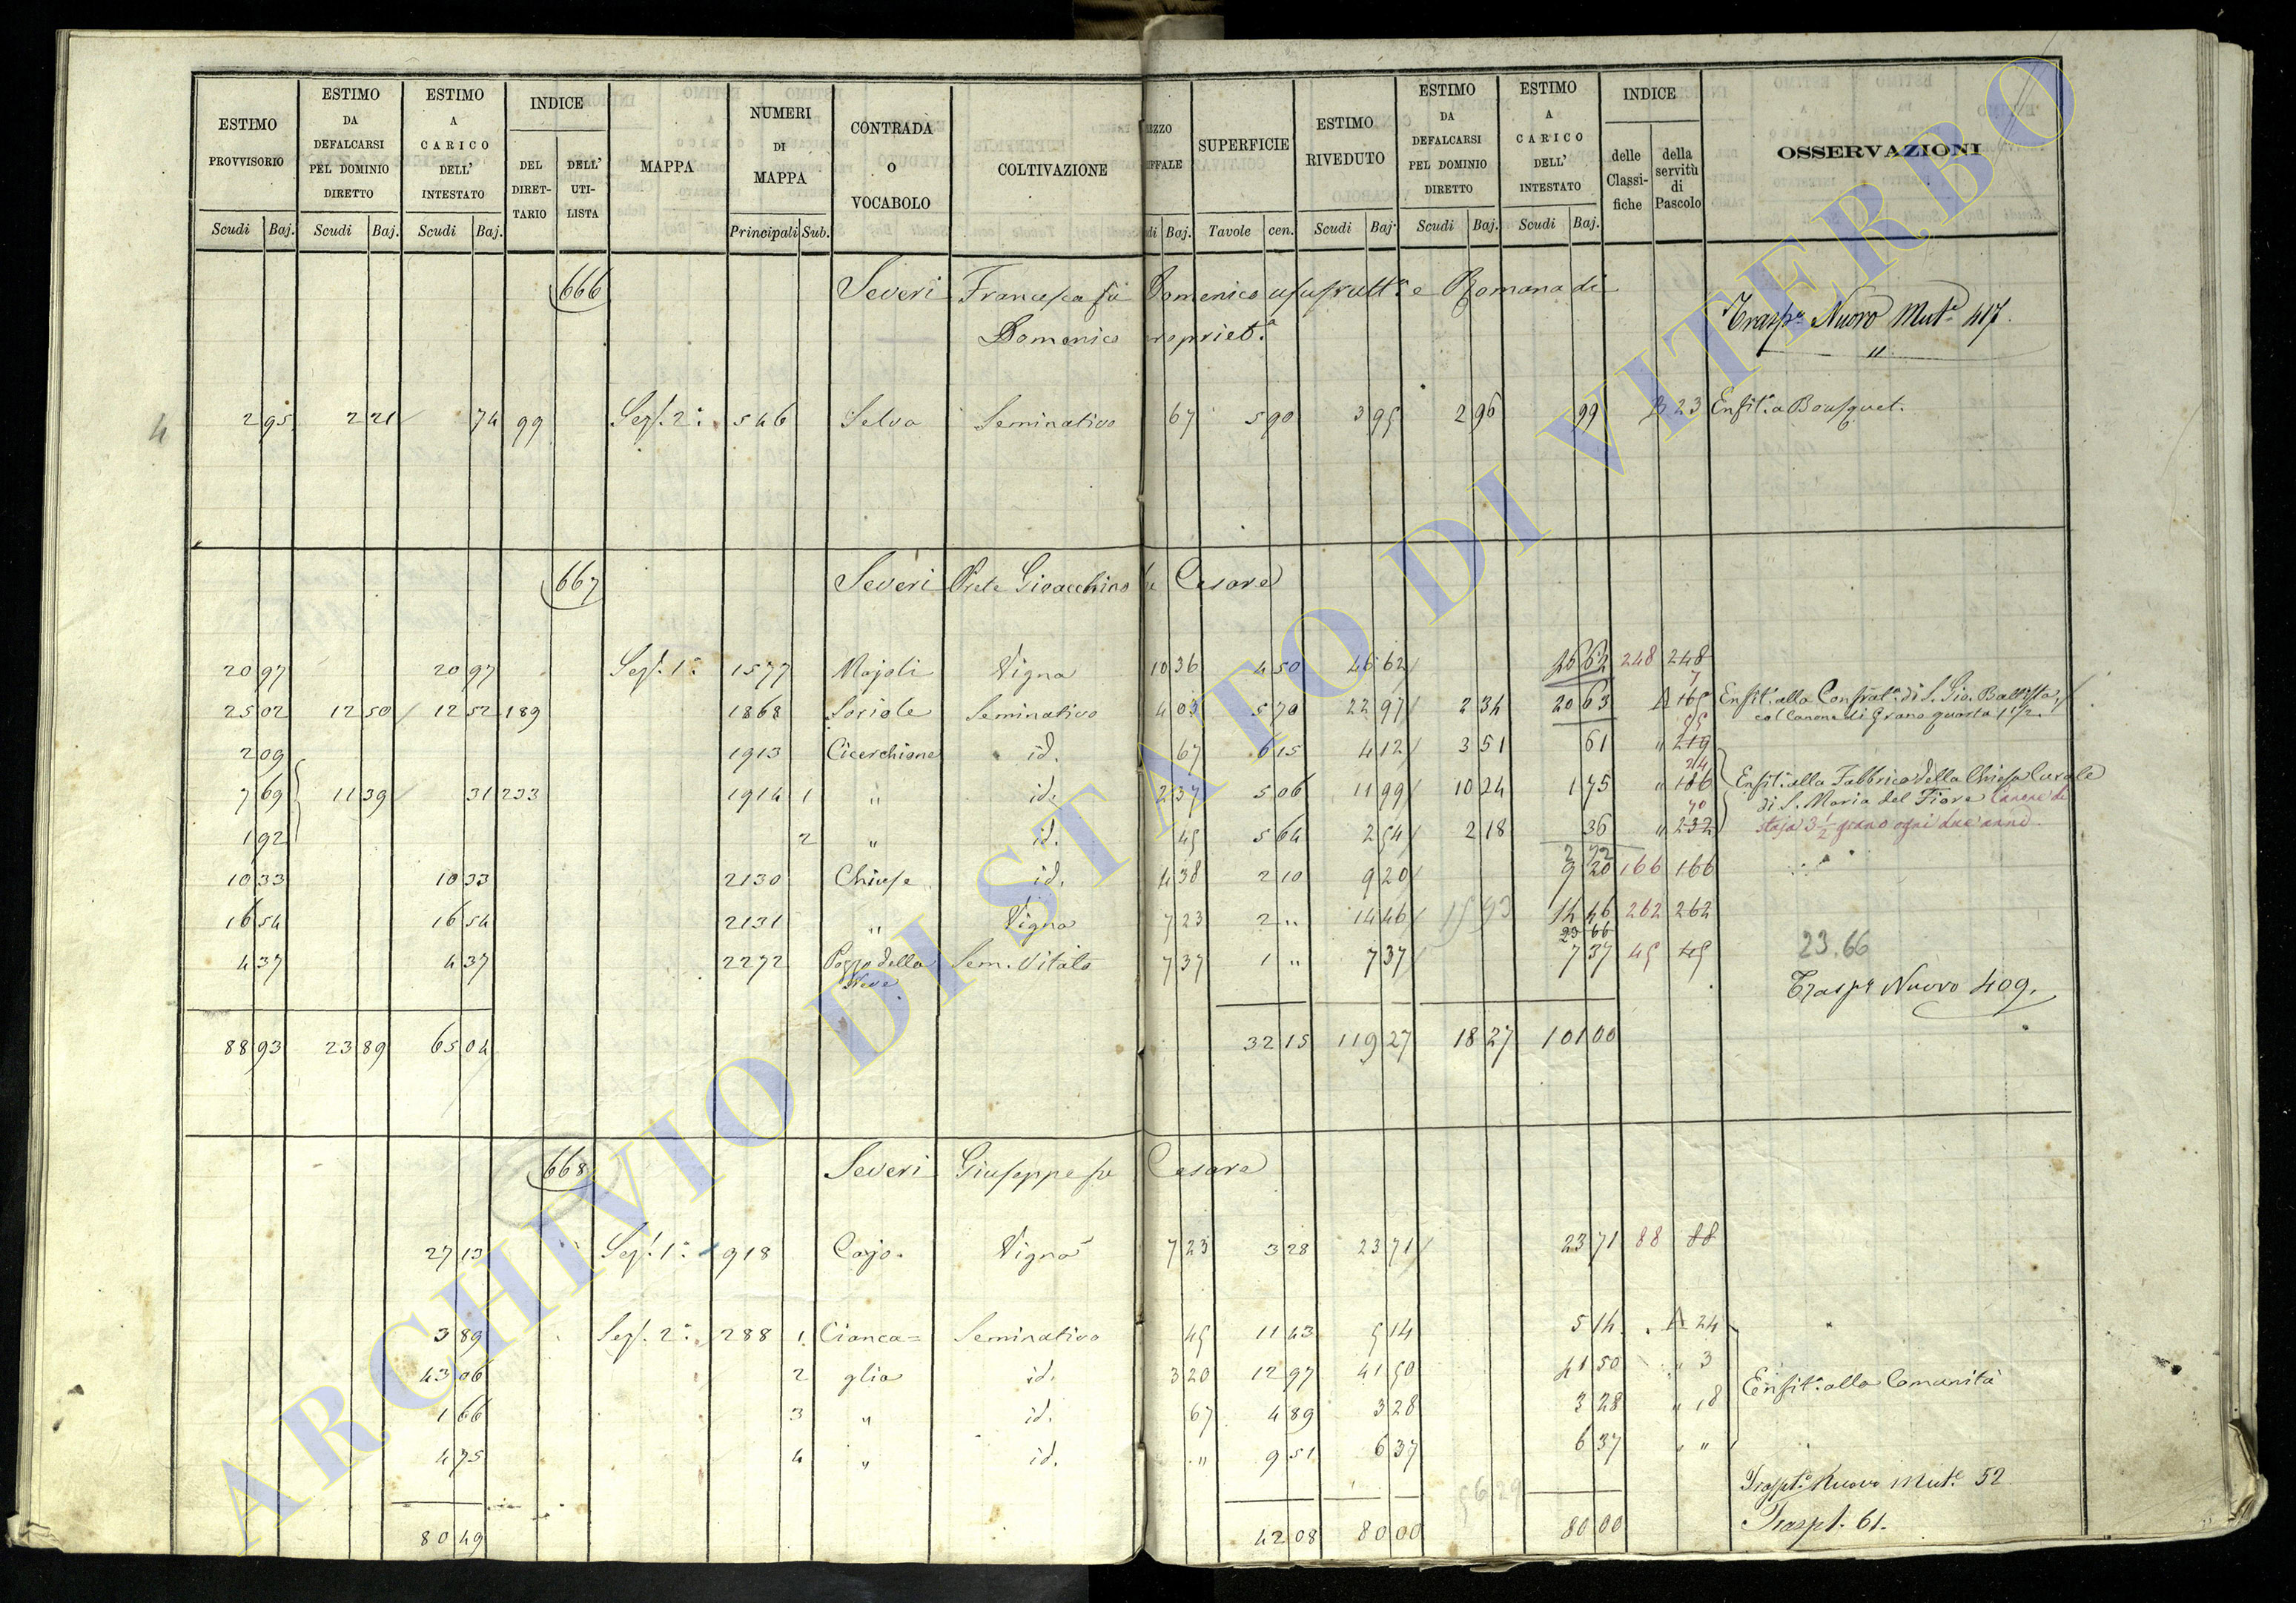 ESTIMO PROVVISORIO | ESTIMO DA DEFALCARSI PEL DOMINIO DIRETTO | ESTIMO A CARICO DELL' INTESTATO | INDICE DEL DIRET- TARIO | DELL' UTI- LISTA | MAPPA | NUMERI DI MAPPA | CONTRADA O VOCABOLO | COLTIVAZIONE | EZZO IFFALE | SUPERFICIE | ESTIMO RIVEDUTO | ESTIMO DA DEFALCARSI PEL DOMINIO DIRETTO | ESTIMO A CARICO DELL' INTESTATO | INDICE delle Classi- fiche | della servitù di Pascolo | OSSERVAZIONI
Scudi | Baj. | Scudi | Baj. | Scudi | Baj. | Principali | Sub. | di | Baj. | Tavole | cen. | Scudi | Baj. | Scudi | Baj. | Scudi | Baj.
666 Severi Francesca fu Domenico usufrutt.a e Romana di
Domenico propriet.a
Trasp.o Nuovo Mut.e 417.
"
4 2 95 2 21 74 99 Sez. 2a 546 Selva Seminativo 67 5 90 3 95 2 96 99 B 23 Enfit.a a Bousquet.
667 Severi Prete Gioacchino fu Cesare
20 97 20 97 Sez. 1a 1577 Majoli Vigna 10 36 4 50 46 62 46 62 248 248
25 02 12 50 12 52 189 1868 Soriole Seminativo 4 03 5 70 22 97 2 34 20 63 A 165 7 Enfit. alla Confrat.a di S. Gio. Battista
col Canone di Grano quarta 1 1/2.
2 09 1913 Cicerchione id. 67 6 15 4 12 3 51 61 " 219 55
7 69 11 39 31 233 1914 1 " id. 2 37 5 06 11 99 10 24 1 75 " 186 24 Enfit. alla Fabbrica della Chiesa Curale
di S. Maria del Fiore Canone di
1 92 2 " id. 45 5 64 2 54 2 18 36 " 232 70 staja 3 1/2 grano ogni due anni.
2 72
10 33 10 33 2130 Chiuse id. 4 38 2 10 9 20 9 20 166 166
16 54 16 54 2131 " Vigna 7 23 2 " 14 46 15 93 14 46 262 262
23 66
4 37 4 37 2272 Pozzo della Neve Sem. Vitato 7 37 1 " 7 37 7 37 45 45
23.66
Trasp.o Nuovo 409.
88 93 23 89 65 04 32 15 119 27 18 27 101 00
668 Severi Giuseppe fu Cesare
27 13 Sez. 1a 918 Cajo. Vigna 7 23 3 28 23 71 23 71 88 88
3 89 Sez. 2a 288 1 Cianca= Seminativo 45 11 43 5 14 5 14 A 24
43 06 2 glia id. 3 20 12 97 41 50 41 50 " 3 Enfit.a alla Comunità
1 66 3 " id. 67 4 89 3 28 3 28 " 18
4 75 4 " id. " 9 51 6 37 6 37 " "
56 29
Traspt.o Nuovo Mut.e 52
80 49 42 08 80 00 80 00 Traspt. 61.
ARCHIVIO DI STATO DI VITERBO